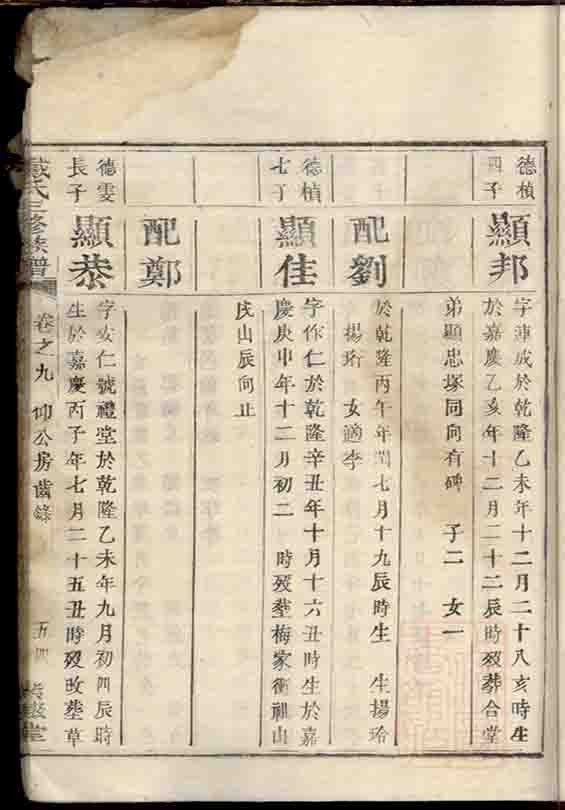 德楨四子
顯邦
字連成於乾隆乙未年十二月二十八亥時生
於嘉慶乙亥年十二月二十二辰時歿葬合堂
弟顯忠塚同向有碑 子二 女一
配劉
於乾隆丙午年閏七月十九辰時生 生揚玲
揚珩 女適李
德楨七子
顯佳
字作仁於乾隆辛丑年十月十六丑時生於嘉
慶庚申年十二月初二 時歿塟梅家衝祖山
戌山辰向止
配鄭
德雯長子
顯恭
字安仁號禮堂於乾隆乙未年九月初四辰時
生於嘉慶丙子年七月二十五丑時歿改塟草
戴氏三修族譜
卷之九 仰公房齒錄
五四